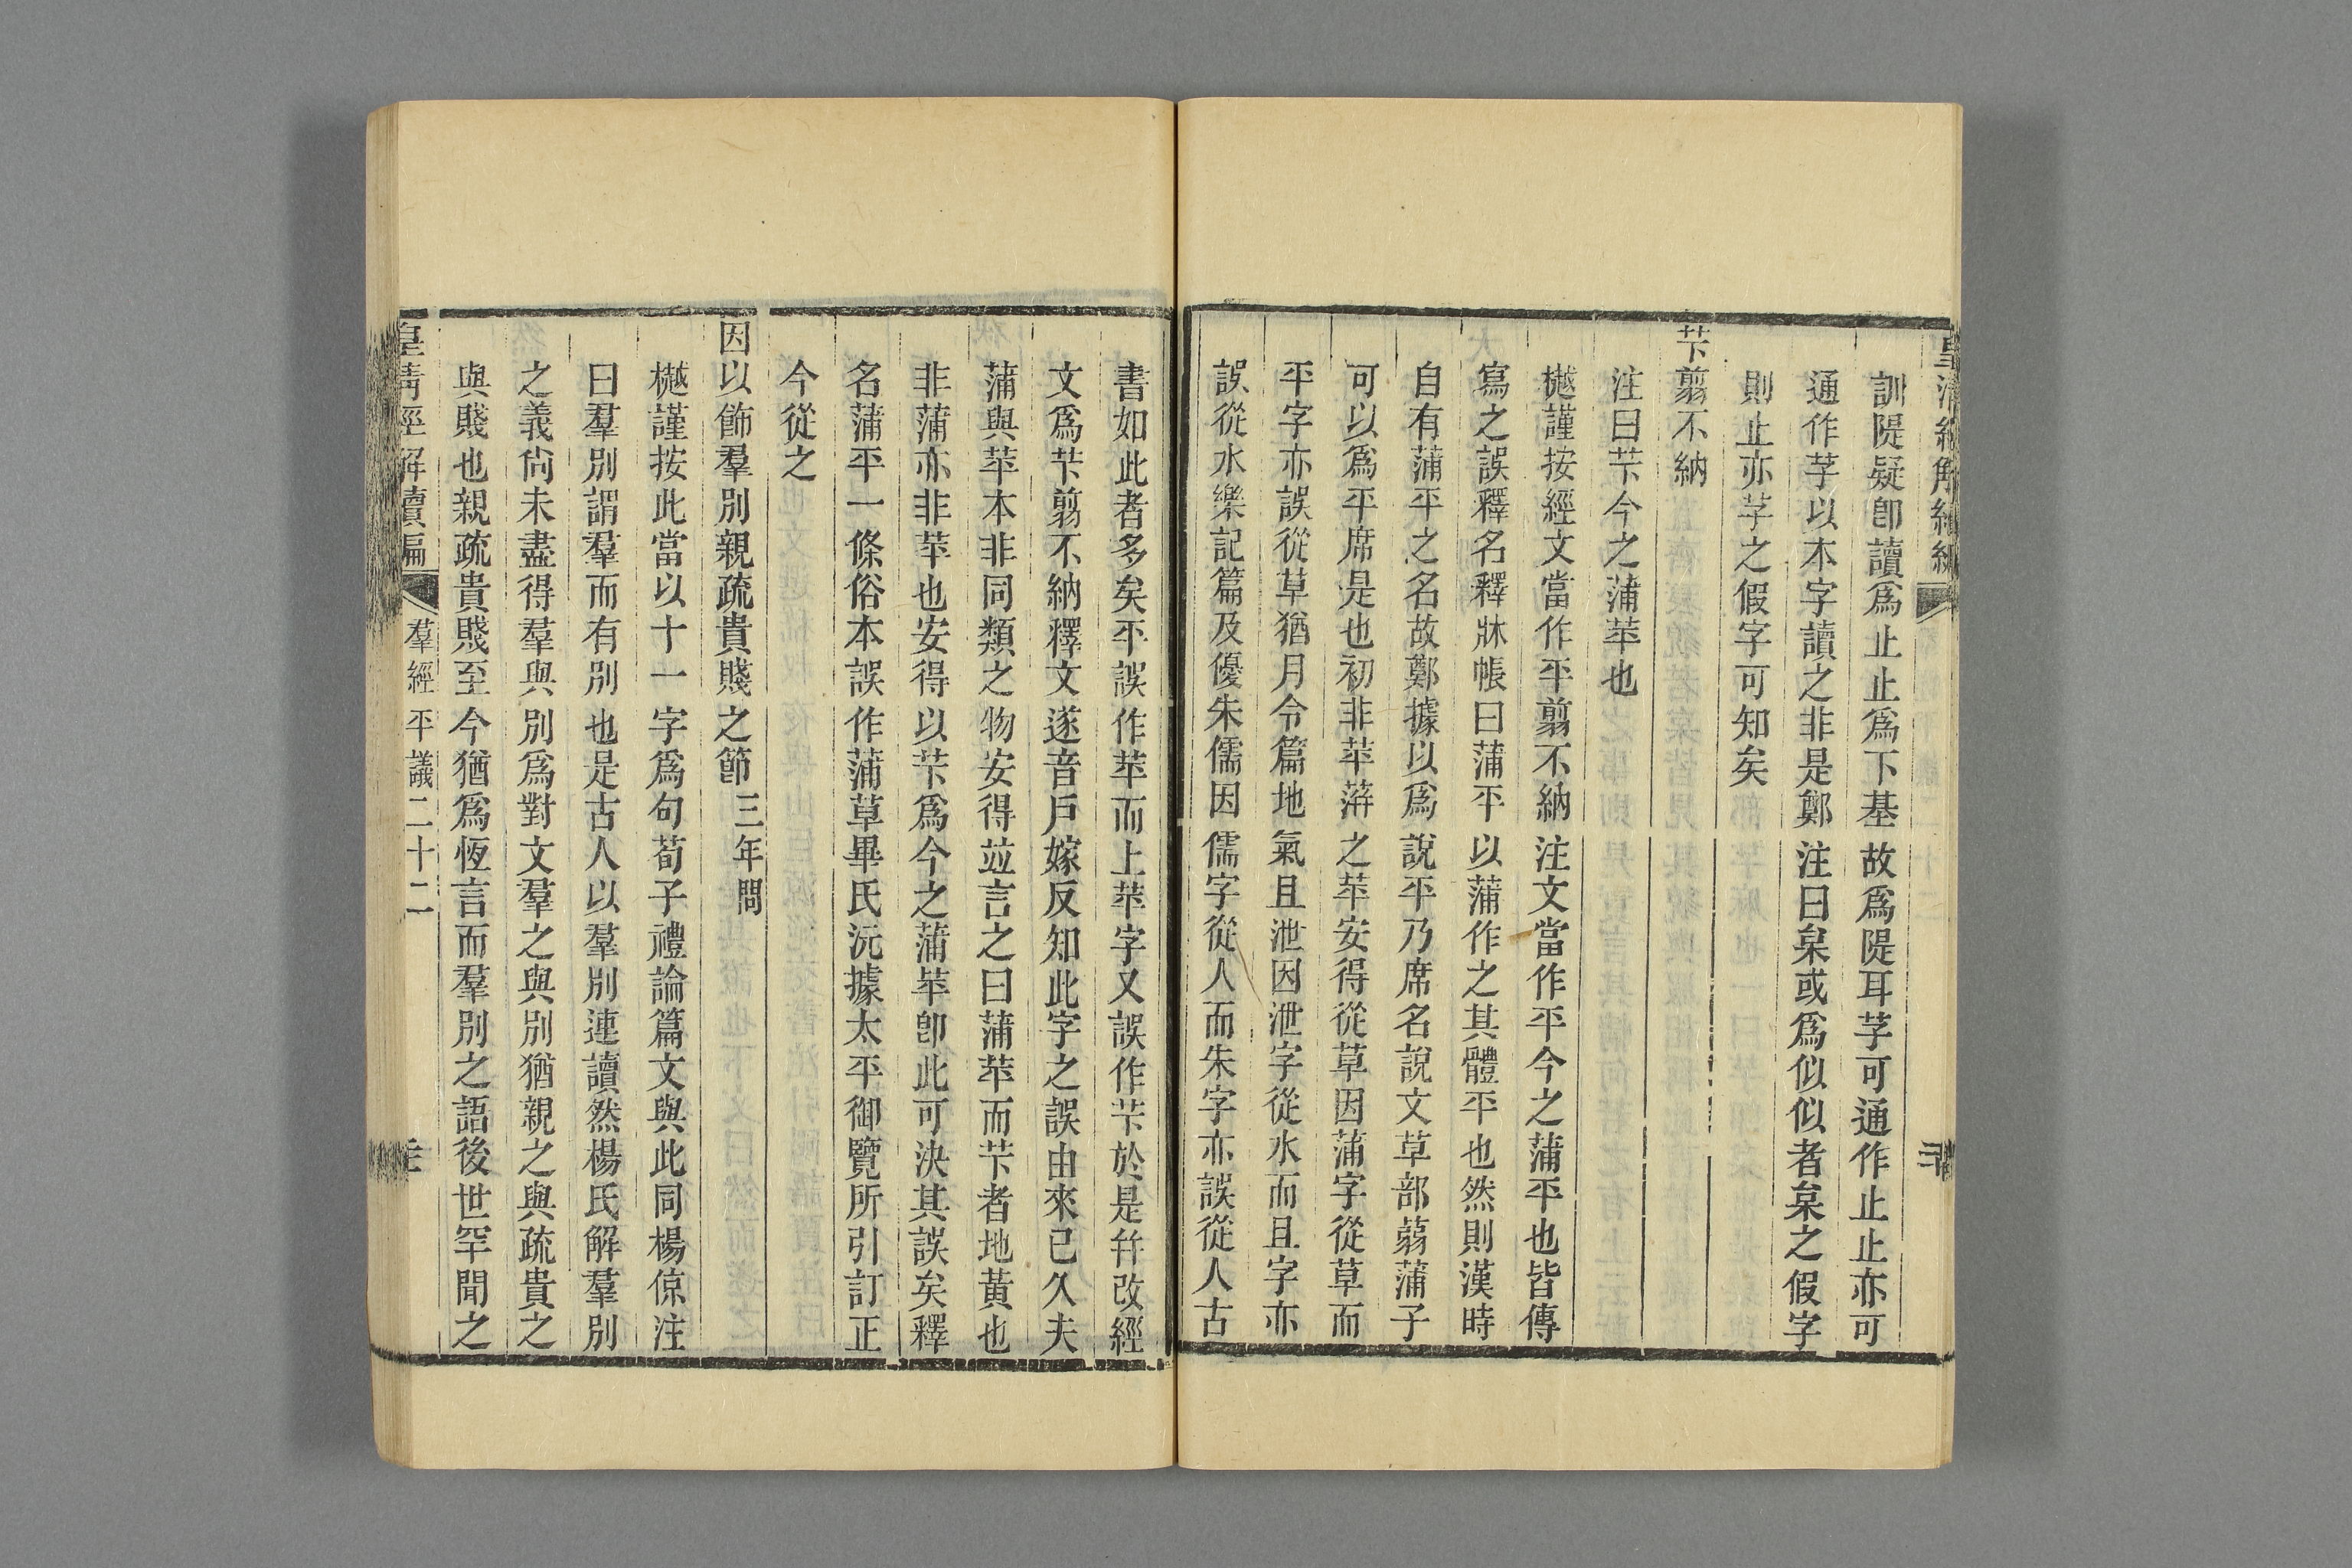 皇清經解續編
訓隄疑卽讀爲止止爲下基故爲隄耳芓可通作止止亦可
通作芓以本字讀之非是鄭注曰枲或爲似似者枲之假字
則止亦芓之假字可知矣
苄翦不納
注曰苄今之蒲苹也
樾謹按經文當作平翦不納注文當作平今之蒲平也皆傳
寫之誤釋名釋牀帳曰蒲平以蒲作之其體平也然則漢時
自有蒲平之名故鄭據以爲說平乃席名說文草部蒻蒲子
可以爲平席是也初非苹蓱之苹安得從草因蒲字從草而
平字亦誤從草猶月令篇地氣且泄因泄字從水而且字亦
誤從水樂記篇及優朱儒因儒字從人而朱字亦誤從人古
書如此者多矣平誤作苹而上苹字又誤作苄於是幷改經
文爲苄翦不納釋文遂音戶嫁反知此字之誤由來已久夫
蒲與苹本非同類之物安得竝言之曰蒲苹而苄者地黃也
非蒲亦非苹也安得以苄爲今之蒲苹卽此可決其誤矣釋
名蒲平一條俗本誤作蒲草畢氏沅據太平御覽所引訂正
今從之
因以飾羣別親疏貴賤之節三年問
樾謹按此當以十一字爲句荀子禮論篇文與此同楊倞注
曰羣別謂羣而有別也是古人以羣別連讀然楊氏解羣別
之義尙未盡得羣與別爲對文羣之與別猶親之與疏貴之
與賤也親疏貴賤至今猶爲恆言而羣別之語後世罕聞之
皇淸經解續編 羣經平議二十二